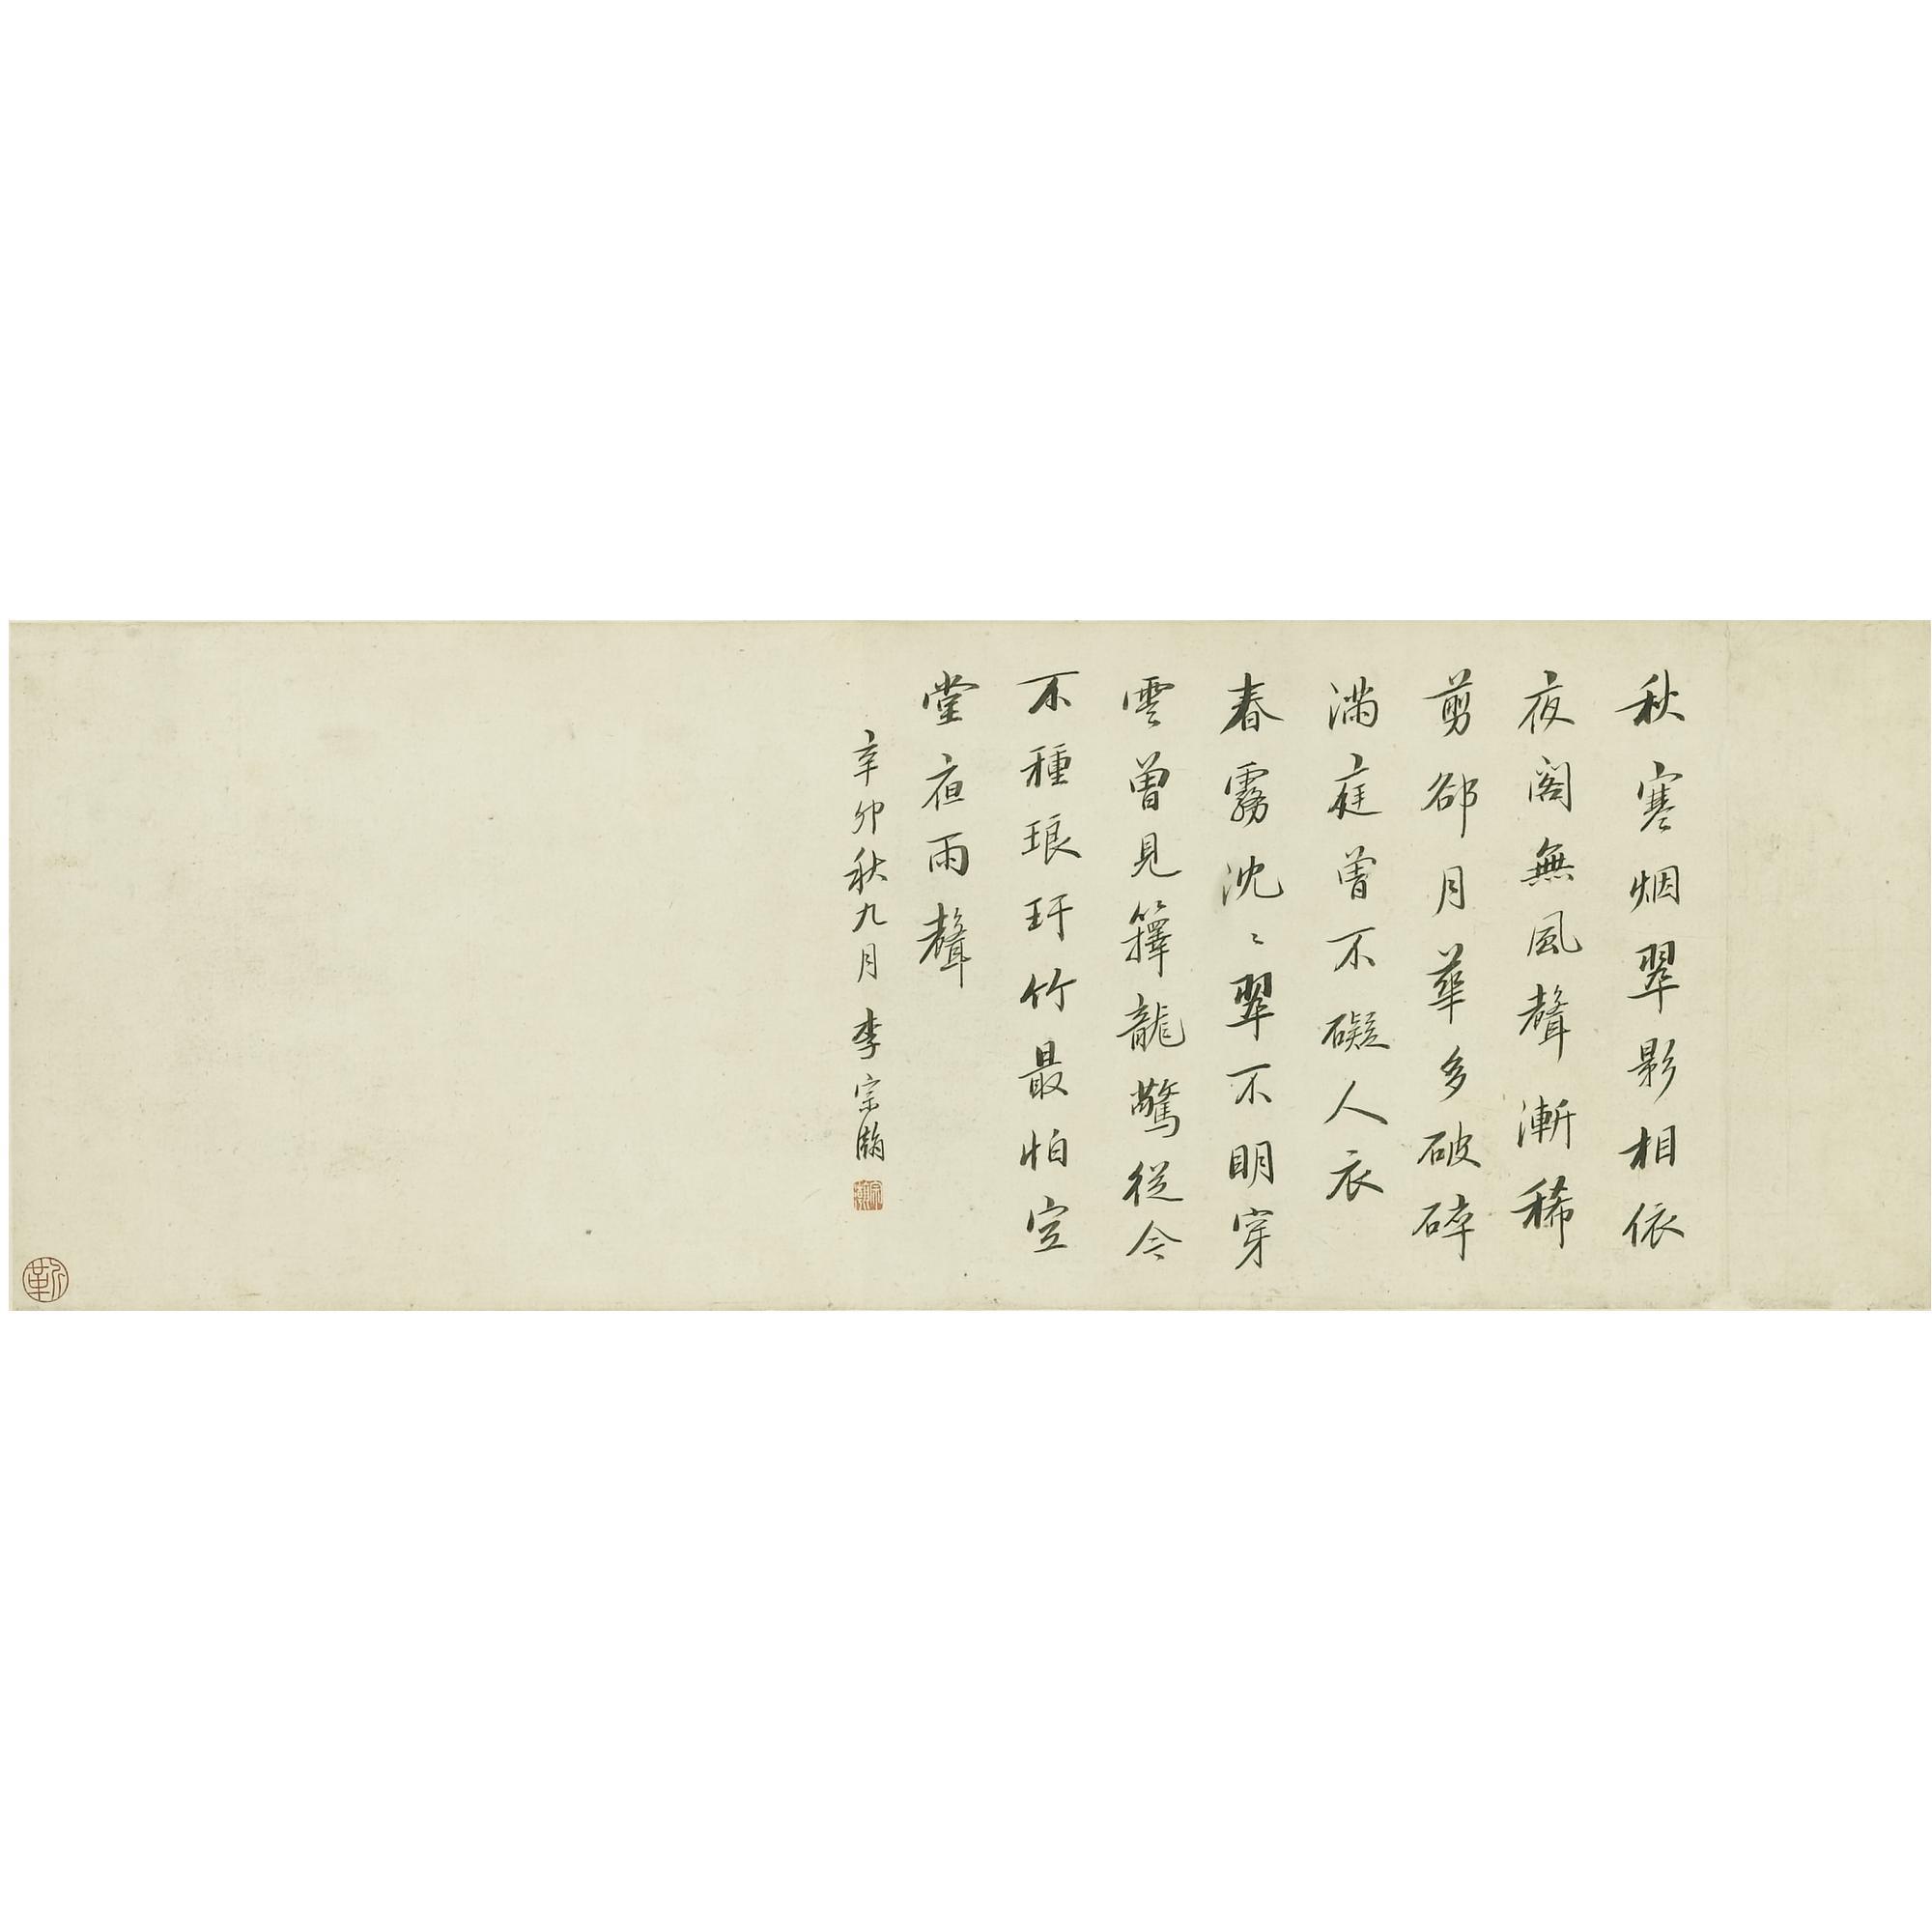 秋寒烟翠影相依
夜閣無風聲漸稀
剪郤月華多破碎
滿庭曾不礙人衣
春霧沈〻翠不明穿
雲曾見籜龍驚從今
不種琅玕竹最怕空
堂夜雨聲
辛卯秋九月 李宗瀚